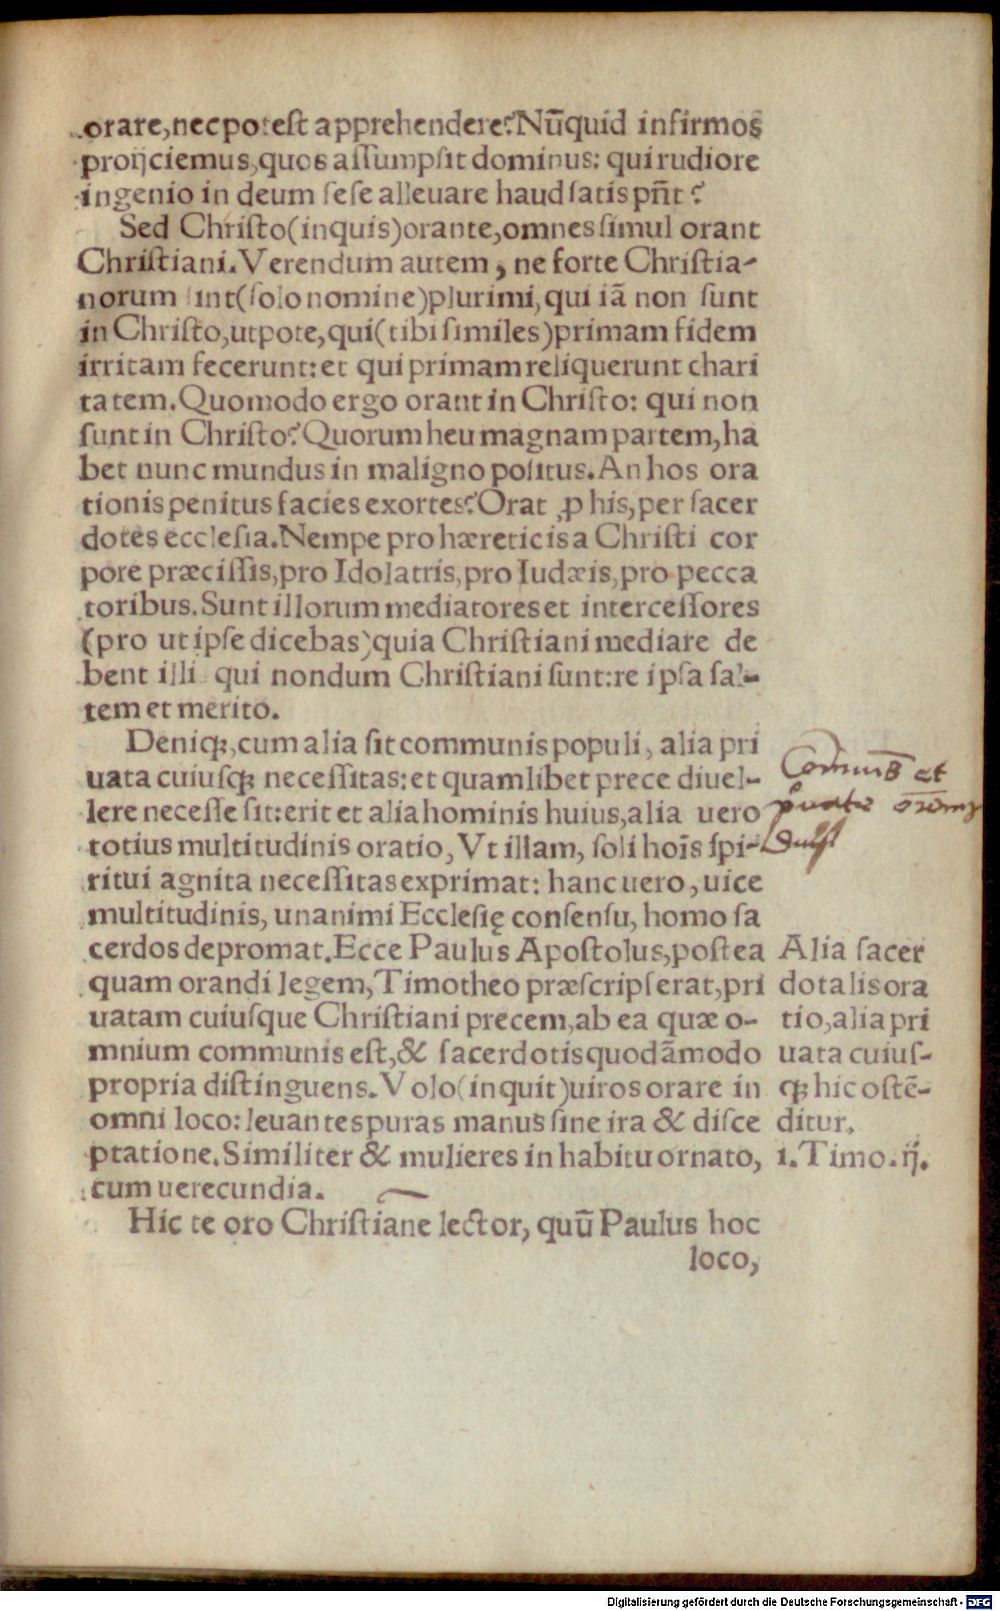 orare, nec potest apprehendere? Nũquid infirmos
proijciemus, quos assumpsit dominus: qui rudiore
ingenio in deum sese alleuare haud satis pñt?
Sed Christo (inquis) orante, omnes simul orant
Christiani. Verendum autem, ne forte Christia-
norum sint (solo nomine) plurimi, qui iã non sunt
in Christo, utpote, qui (tibi similes) primam fidem
irritam fecerunt: et qui primam reliquerunt chari
tatem. Quomodo ergo orant in Christo: qui non
sunt in Christo? Quorum heu magnam partem, ha
bet nunc mundus in maligno positus. An hos ora
tionis penitus facies exortes? Orat ꝓ his, per sacer
dotes ecclesia. Nempe pro hæreticis a Christi cor
pore præcissis, pro Idolatris, pro Iudæis, pro pecca
toribus. Sunt illorum mediatores et intercessores
(pro ut ipse dicebas) quia Christiani mediare de
bent illi qui nondum Christiani sunt: re ipsa sal-
tem et merito.
Deniqꝫ, cum alia sit communis populi, alia pri
uata cuiusqꝫ necessitas: et quamlibet prece diuel-
lere necesse sit: erit et alia hominis huius, alia uero
totius multitudinis oratio, Vt illam, soli hoĩs spi-
ritui agnita necessitas exprimat: hanc uero, uice
multitudinis, unanimi Ecclesię consensu, homo sa
cerdos depromat. Ecce Paulus Apostolus, postea
quam orandi legem, Timotheo præscripserat, pri
uatam cuiusque Christiani precem, ab ea quæ o-
mnium communis est, & sacerdotis quodãmodo
propria distinguens. Volo (inquit) uiros orare in
omni loco: leuantes puras manus sine ira & disce
ptatione. Similiter & mulieres in habitu ornato,
cum uerecundia.
Hic te oro Christiane lector, quũ Paulus hoc
loco,
et
Alia sacer
dotalis ora
tio, alia pri
uata cuius-
qꝫ hic ostẽ-
ditur.
1. Timo. ij.
Digitalisierung gefördert durch die Deutsche Forschungsgemeinschaft - DFG